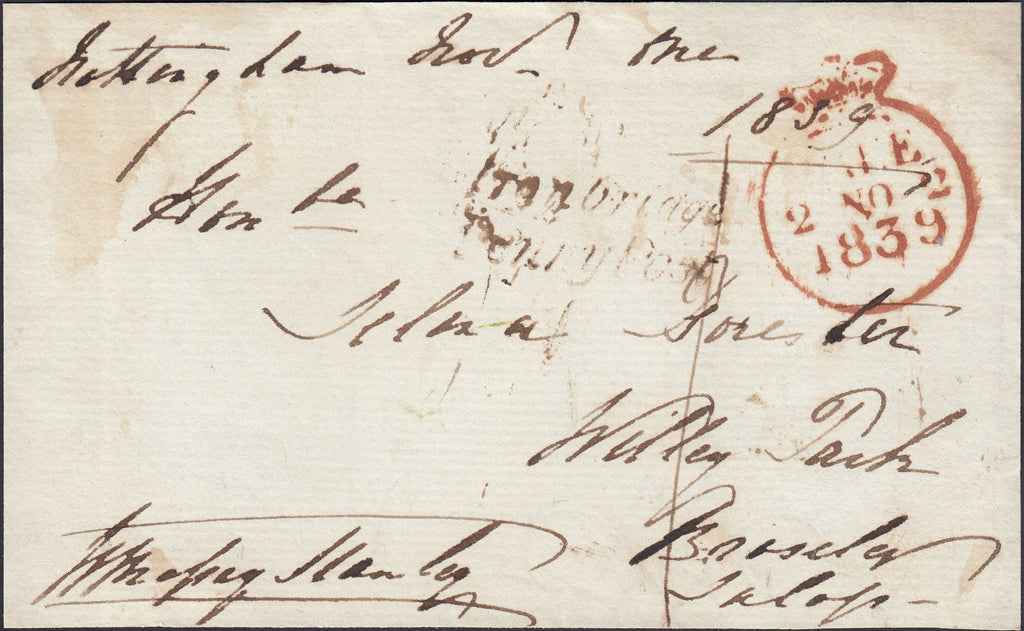 Nottingham Nov. one
1839
Honble
Selina Forester
Willey Park
Broseley
Salop
Stanley
Ironbridge
Penny Post
E
2 NO 2
1839